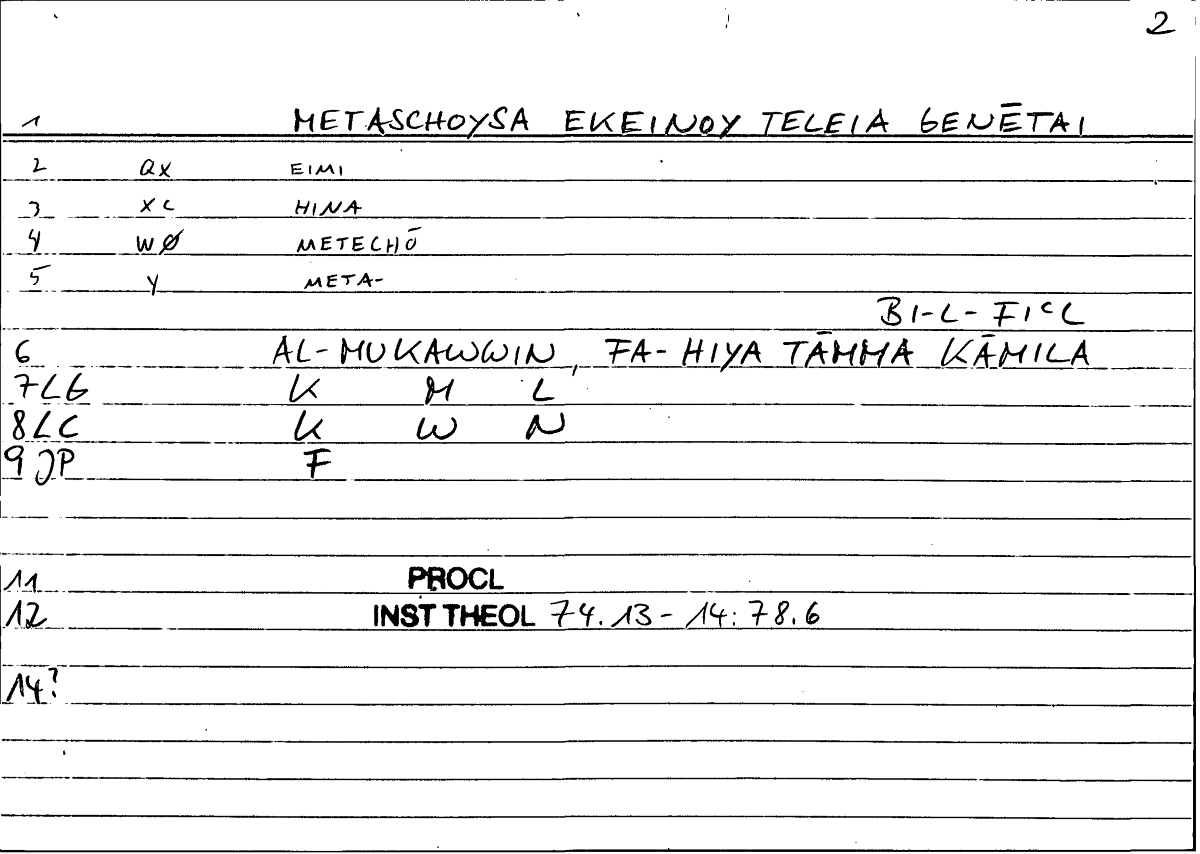 2
1 METASCHOYSA EKEINOY TELEIA GENĒTAI
2 QX EIMI
3 XC HINA
4 WØ METECHŌ
5 Y META-
BI-L-FIᶜL
6 AL-MUKAWWIN, FA-HIYA TĀMMA KĀMILA
7 LG K M L
8 LC K W N
9 JP F
11 PROCL
12 INST THEOL 74.13-14:78.6
14?